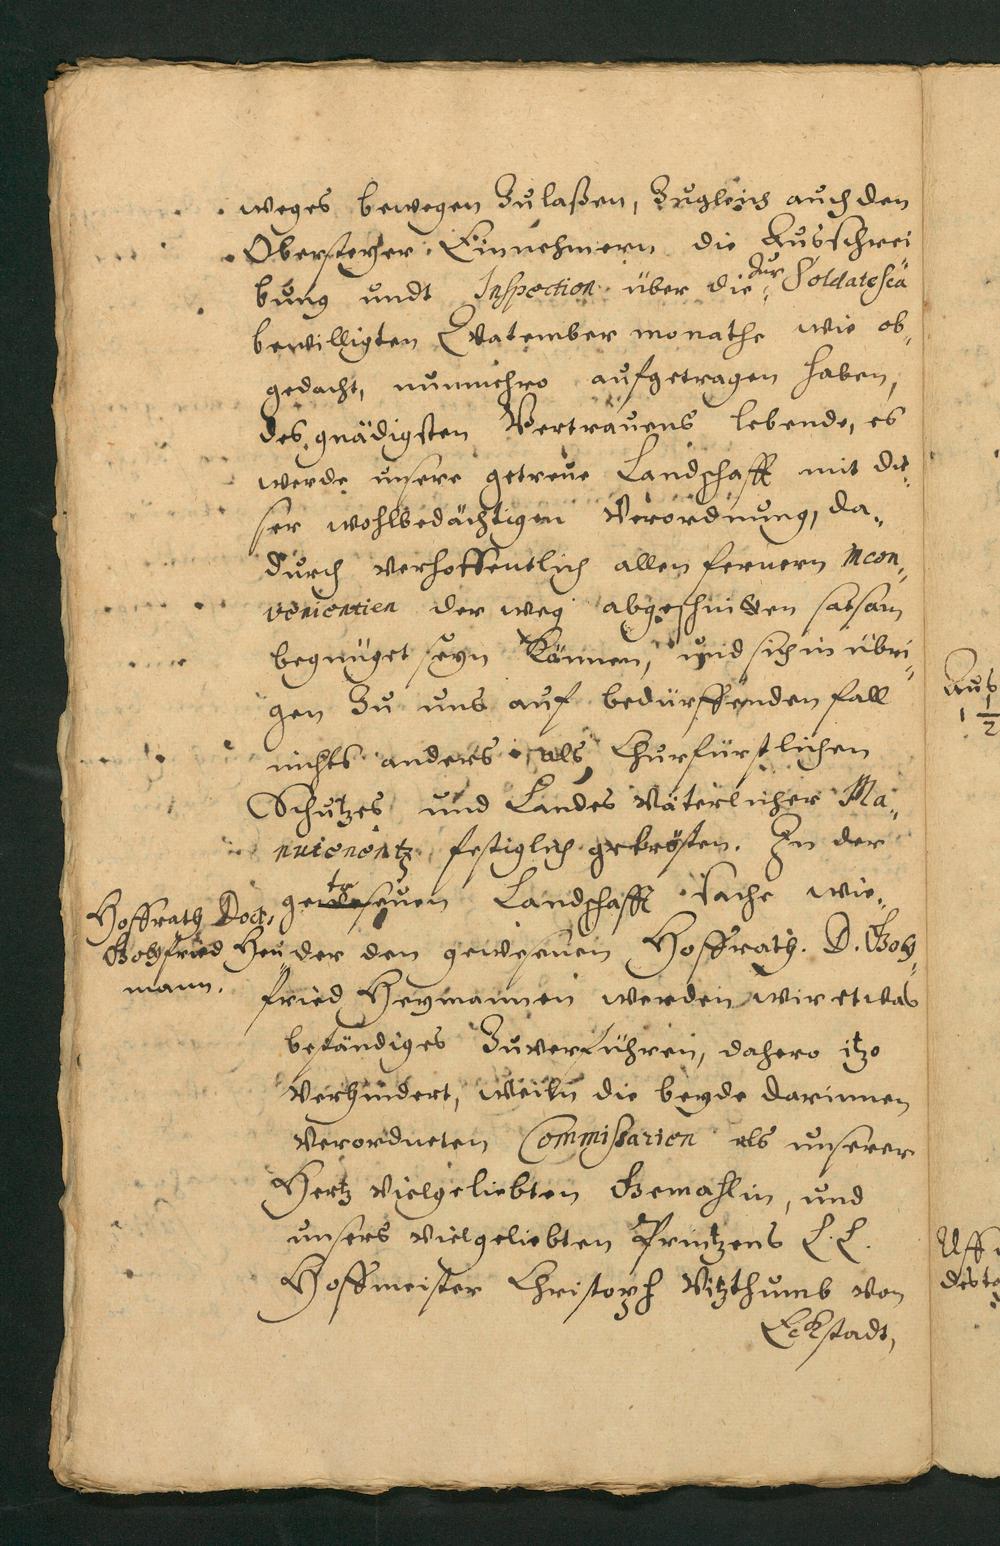 weges bewegen Zulaßen, Zugleich auch den
Obersteyer Einnehmern die Ausschrei
bung undt Inspection über die zur Soldatesca
bewilligten Quatember monathe wie ob„
gedacht, nunmehro aufgetragen haben,
des gnädigsten Vertrauens lebende, es
werde unsere getreue Landschafft mit die„
ser wohlbedächtigen Verordnung, da„
durch verhoffentlich allen fernern Incon„
venientien der weg abgeschnitten satsam
begnüget seyn Können, und sich in übri„
gen Zu uns auf bedürffenden fall
nichts anders als Churfürstlichen
Schutzes und Landes Väterlicher Ma„
nutenentz festiglich getrösten. In der
getreuen Landschafft sache wie„
Hoffrath Doct.
Gottfried Hey„
mann.
der den gewesenen Hoffrath. D. Gott„
fried Heymannen werden wir etwas
beständiges Zuverführen, dahero itzo
verhindert, weiln die beyde darinnen
verordneten Commissarien als unserer
Hertz vielgeliebten Gemahlin, und
unsers vielgeliebten Printzens L. L.
Hoffmeister Christoph Vitzthumb von
Eckstadt,
Aus
1 1/2
Uff
deste